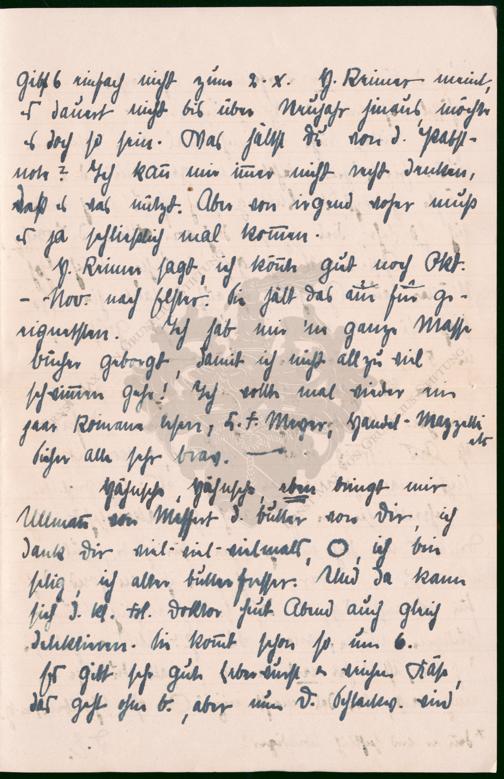 Gibts einfach nicht zum 2. X. H. Reimer meint,
es dauert nicht bis über Neujahr hinaus möchte
es doch so sein. Was hältst Du von d. Pabst-
note? Ich kan̄ mir im̄er nicht recht denken,
daß es was nützt. Aber von irgend woher muß
es ja schließlich mal kom̄en.
H. Reimer sagt, ich kön̄te gut noch Okt.
- Nov. nach Elster. Sie hält das für ge-
eignetsten. Ich hab mir 'ne ganze Masse
Bücher geborgt, damit ich nicht allzu viel
schwim̄en gehe! Ich wollte mal wieder ein
paar Romane lesen, C. F. Meyer, Handel-Mazzetti etc
bisher alle sehr brav.
eben bringt mir
Ullman̄ von Meffert d. Butter von Dir, ich
dank Dir viel-viel-vielmals, O, ich bin
selig, ich alter Butterfresser. Und da kann
sich d. kl. Frl. Doktor heut Abend auch gleich
delektieren. Sie kom̄t schon so um 6.
Es gibt sehr gute Leberwurst u weichen Käse,
das geht ohne B., aber nun d. Schlackw. wird